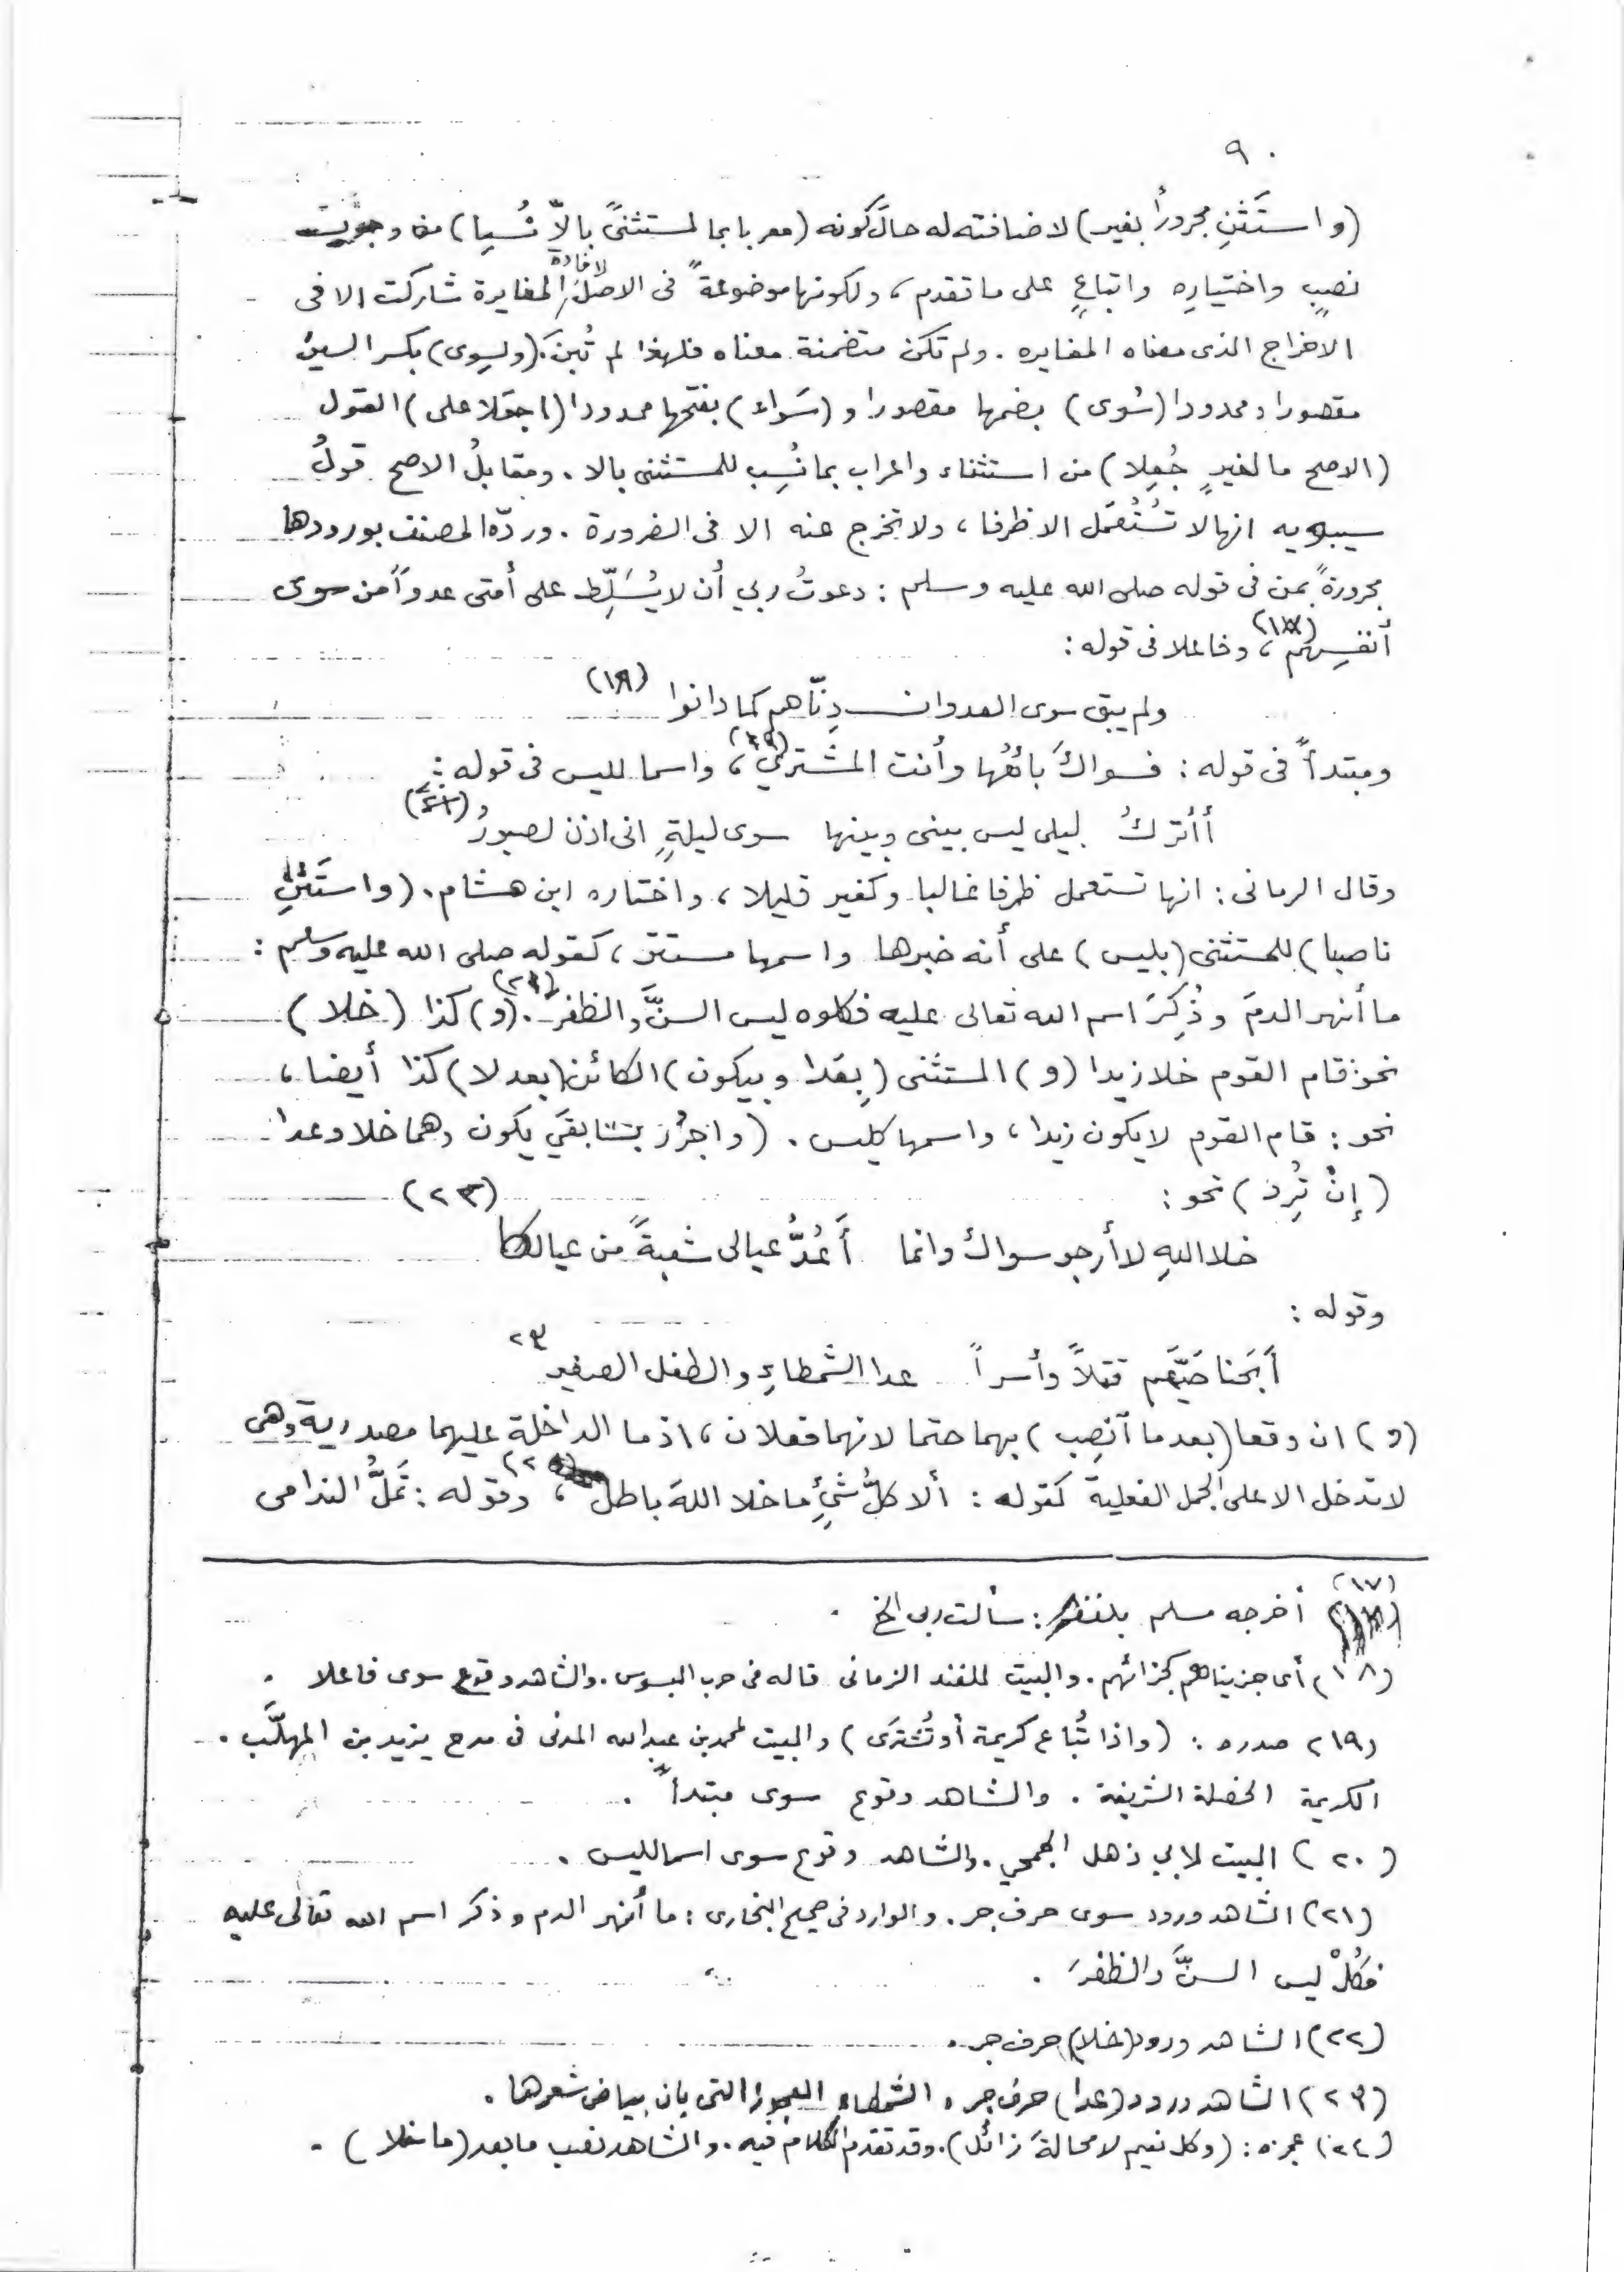 ٩٠
(واستَثنِ مجروراً بغير) لاضافته له حالَ كونه (معربا بما لمستثنىً بالاّ نُسِبا) من وجوب
نصبٍ واختيارِه واتباعٍ على ما تقدم، ولكونها موضوعةً فى الاصل لافادة المغايرة شاركت الا فى
الاخراج الذى معناه المغايره . ولم تكن متضمنة معناه فلهذا لم تُبنَ. (ولِسِوى) بكسر السين
مقصورا وممدودا (سُوى) بضمها مقصورا و (سَواء) بفتحها ممدودا (اجعَلا على) القول
(الاصح ما لغيرٍ جُعِلا) من استثناء واعراب بما نُسِب للمستثنى بالا . ومقابلُ الاصح قولُ
سيبويه انها لا تُستعمَل الا ظرفا، ولا تخرج عنه الا فى الضرورة . وردّه المصنف بورودها
مجرورةً بمن فى قوله صلى الله عليه وسلم : دعوتُ ربي أن لا يُسَلِّط على أمتى عدوّاً من سوى
أنفسِهم (١٧)، وفاعلا فى قوله :
ولم يبق سوى العدوان دِنّاهم كما دانوا (١٨)
ومبتدأً فى قوله : فسواكَ بائعُها وأنت المشترى (١٩)، واسما لليس فى قوله :
أأترك ليلى ليس بيني وبينها سوى ليلةٍ انى اذن لصبورُ (٢٠)
وقال الرمانى : انها تستعمل ظرفا غالبا وكغير قليلا، واختاره ابن هشام . (واستَثنِ
ناصبا) للمستثنى (بليس) على أنه خبرها واسمها مستتر، كقوله صلى الله عليه وسلم :
ما أنهر الدمَ وذُكِرَ اسم الله تعالى عليه فكلوه ليس السنَّ والظفرَ (٢١). (و) كذا (خلا)
نحو: قام القوم خلا زيدا (و) المستثنى (بِعَدا وبيكون) الكائن (بعد لا) كذا أيضا،
نحو : قام القوم لا يكون زيدا، واسمها كليس . (واجرُر بسابقَي يكون وهما خلا وعدا
(إنْ تُرِد) نحو : (٢٢)
خلا اللهِ لا أرجو سواك وانما أَعُدُّ عيالى شعبةً من عيالكا
وقوله :
أَبَحنا حَيَّهم قتلاً وأسراً عدا الشمطاءِ والطفل الصغير ٢٣
(و) ان وقعا (بعد ما آنصِب) بهما حتما لانهما فعلان، اذ ما الداخلة عليهما مصدرية وهى
لا تدخل الا على الجمل الفعلية كقوله : ألا كلُّ شئٍ ما خلا اللهَ باطلُ (٢٤)، وقوله : تَملُّ الندامى
(١٧) أخرجه مسلم بلفظ : سألت ربى الخ .
(١٨) أى جزيناهم كجزائهم . والبيت للفند الزمانى قاله فى حرب البسوس . والشاهد وقوع سوى فاعلا .
(١٩) صدره : (واذا تُباع كريمة أو تُشترَى) والبيت لمحمد بن عبدالله المدنى فى مدح يزيد بن المهلَّب .
الكريمة الخصلة الشريفة . والشاهد وقوع سوى مبتدأً .
(٢٠) البيت لابي دهبل الجمحي . والشاهد وقوع سوى اسما لليس .
(٢١) الشاهد ورود سوى حرف جر . والوارد فى صحيح البخارى : ما أنهر الدم وذكر اسم الله تعالى عليه
فكُلْ ليس السنَّ والظفرَ .
(٢٢) الشاهد ورود (خلا) حرف جر .
(٢٣) الشاهد ورود (عدا) حرف جر . الشمطاء العجوز التى بان بياض شعرها .
(٢٤) عجزه : (وكل نعيم لا محالةَ زائل). وقد تقدم الكلام فيه . والشاهد نصب ما بعد (ما خلا) .